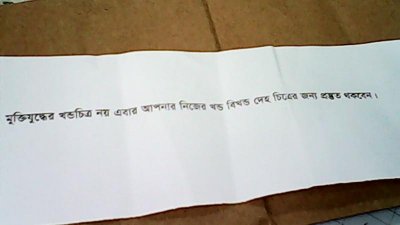 মুক্তিযুদ্ধের খন্ডচিত্র নয় এবার আপনার নিজের খন্ড বিখন্ড দেহ চিত্রের জন্য প্রস্তুত থকবেন।